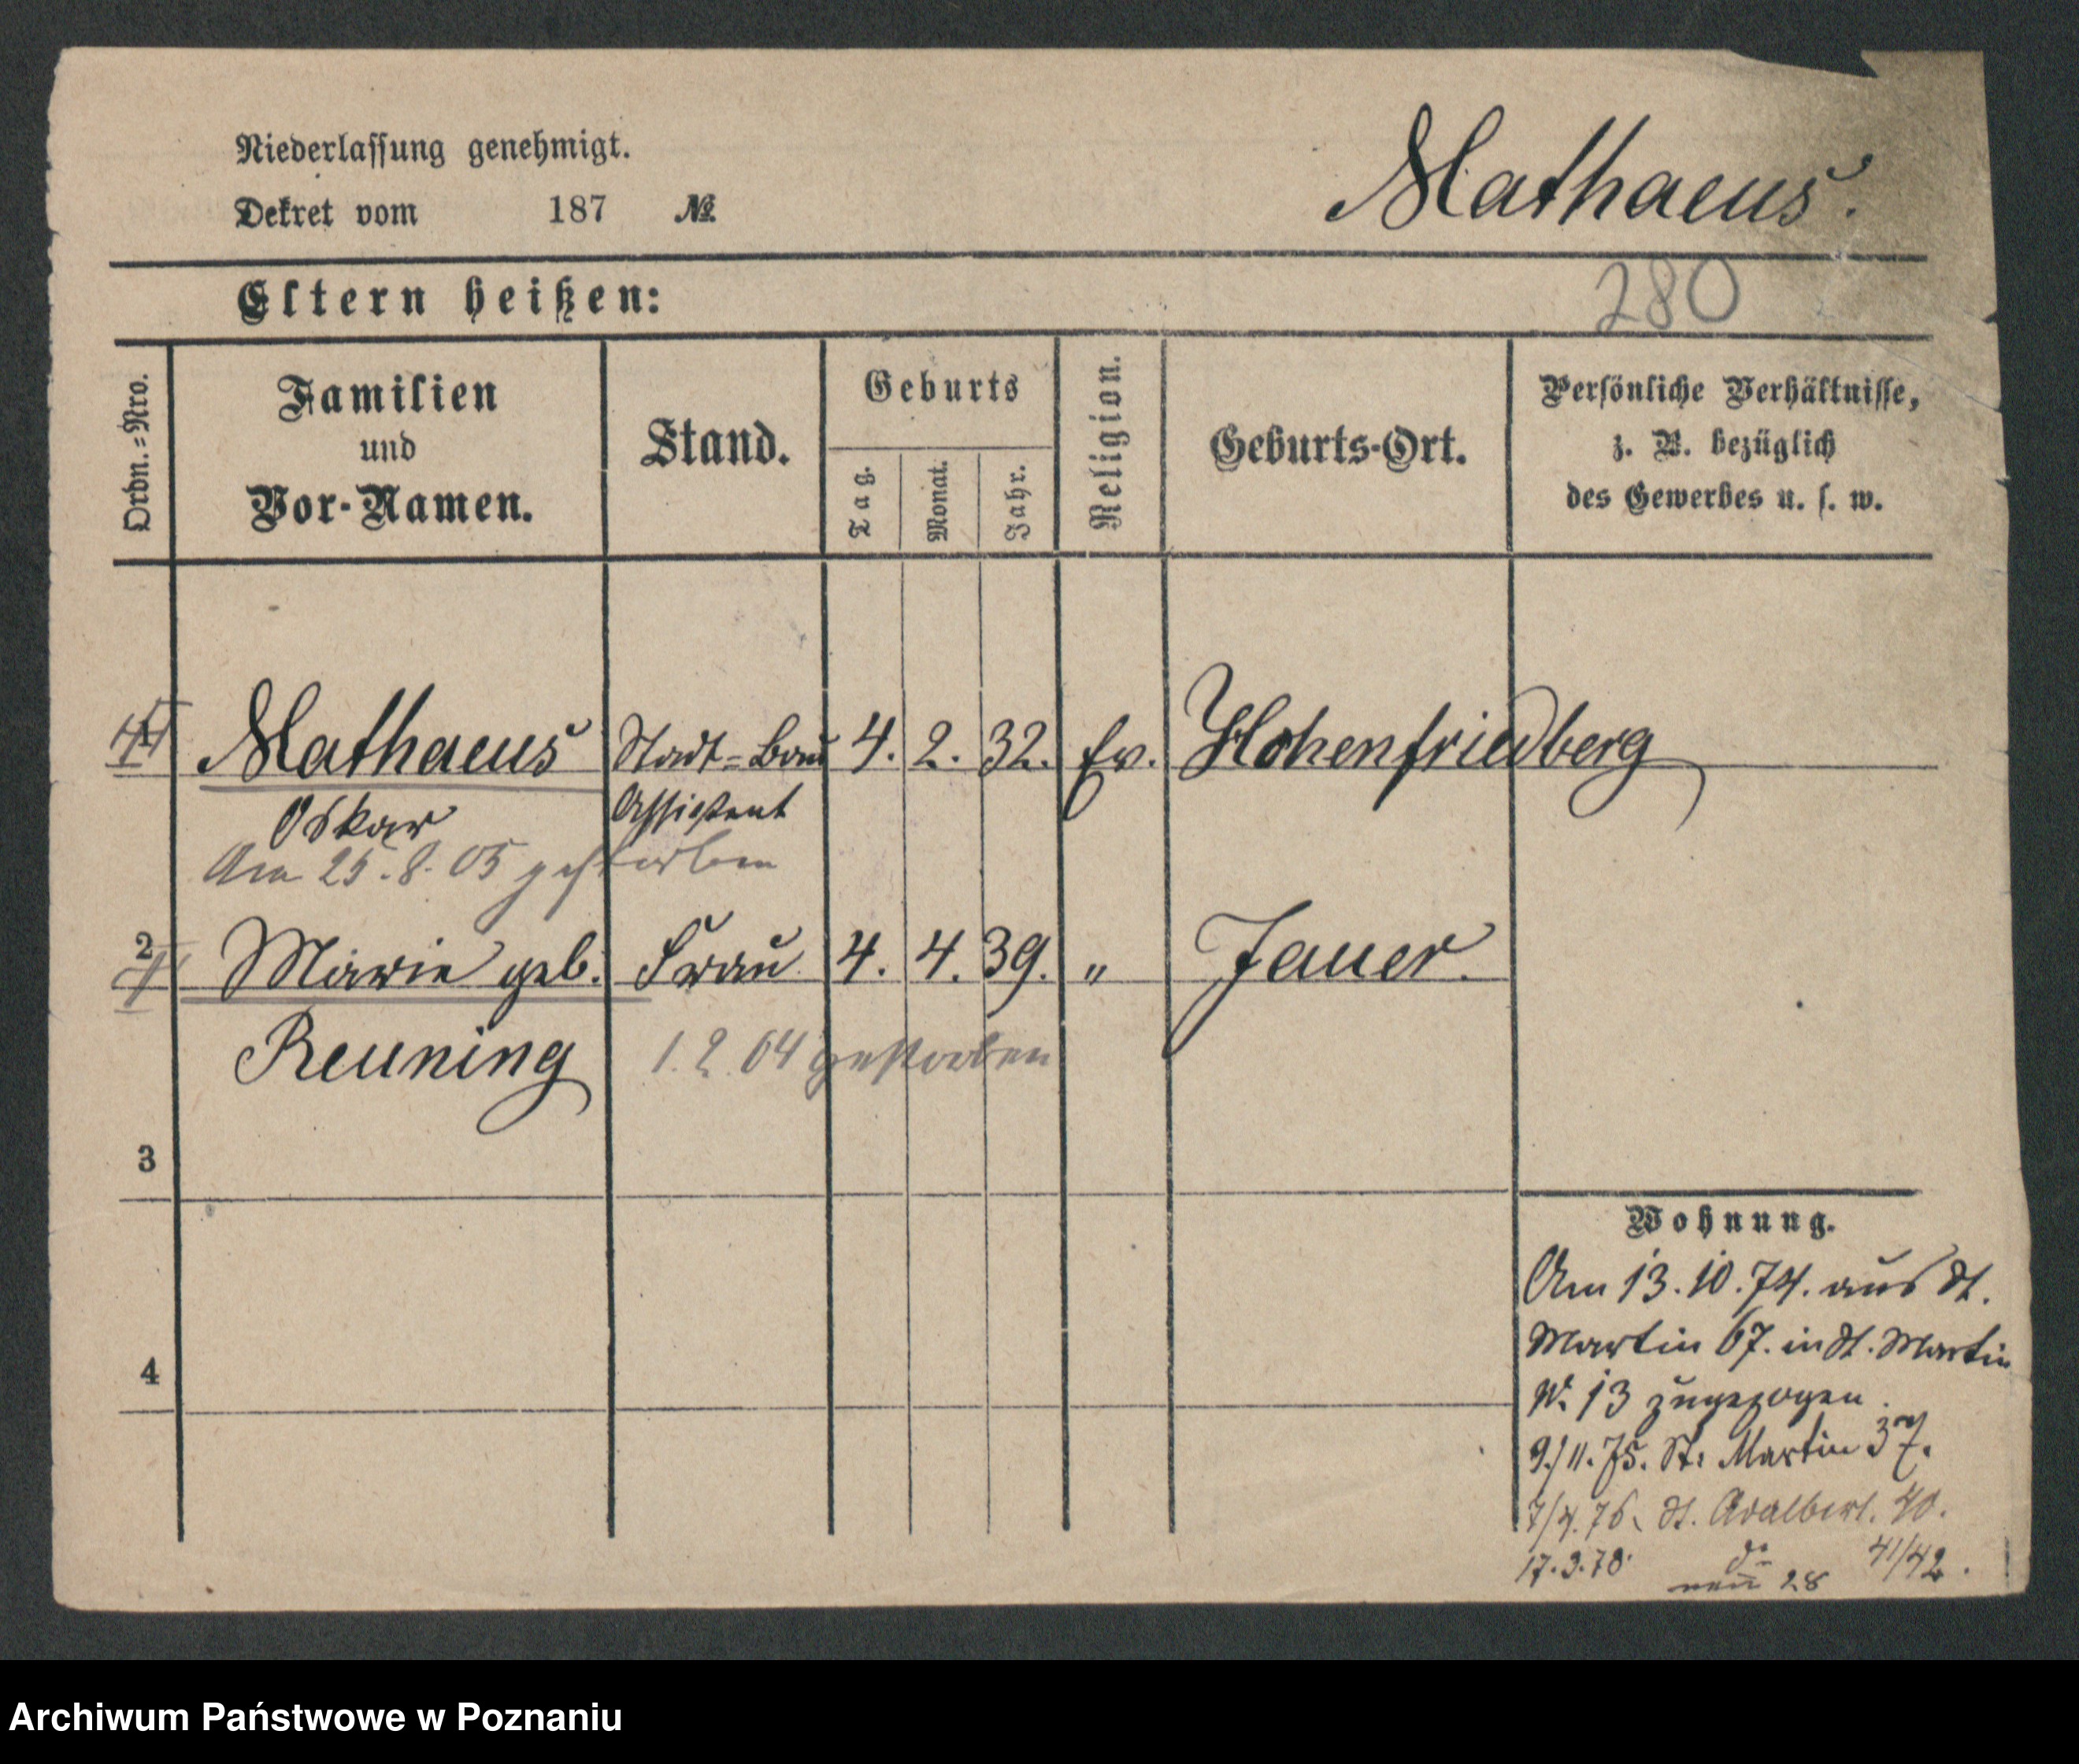 Niederlassung genehmigt.
Mathaeus.
Dekret vom 187 №
Eltern heißen:
280
Ordn.=Nro.
Familien
und
Vor-Namen.
Stand.
Geburts
Tag.
Monat.
Jahr.
Religion.
Geburts-Ort.
Persönliche Verhältnisse,
z. B. bezüglich
des Gewerbes u. s. w.
1 Mathaeus Stadt=Bau 4. 2. 32. Ev. Hohenfriedberg
Oskar Assistent
Am 25.8.05 gestorben
2 Marie geb. Frau 4. 4. 39. " Jauer.
Reuning 1.2.04 gestorben
3
4
Wohnung.
Am 13.10.74. aus St.
Martin 67. in St. Martin
N. 13 zugezogen.
9./11.75. St. Martin 37.
7/4.76. St. Adalbert. 40.
17.3.78. do 41/42.
neu 28
Archiwum Państwowe w Poznaniu